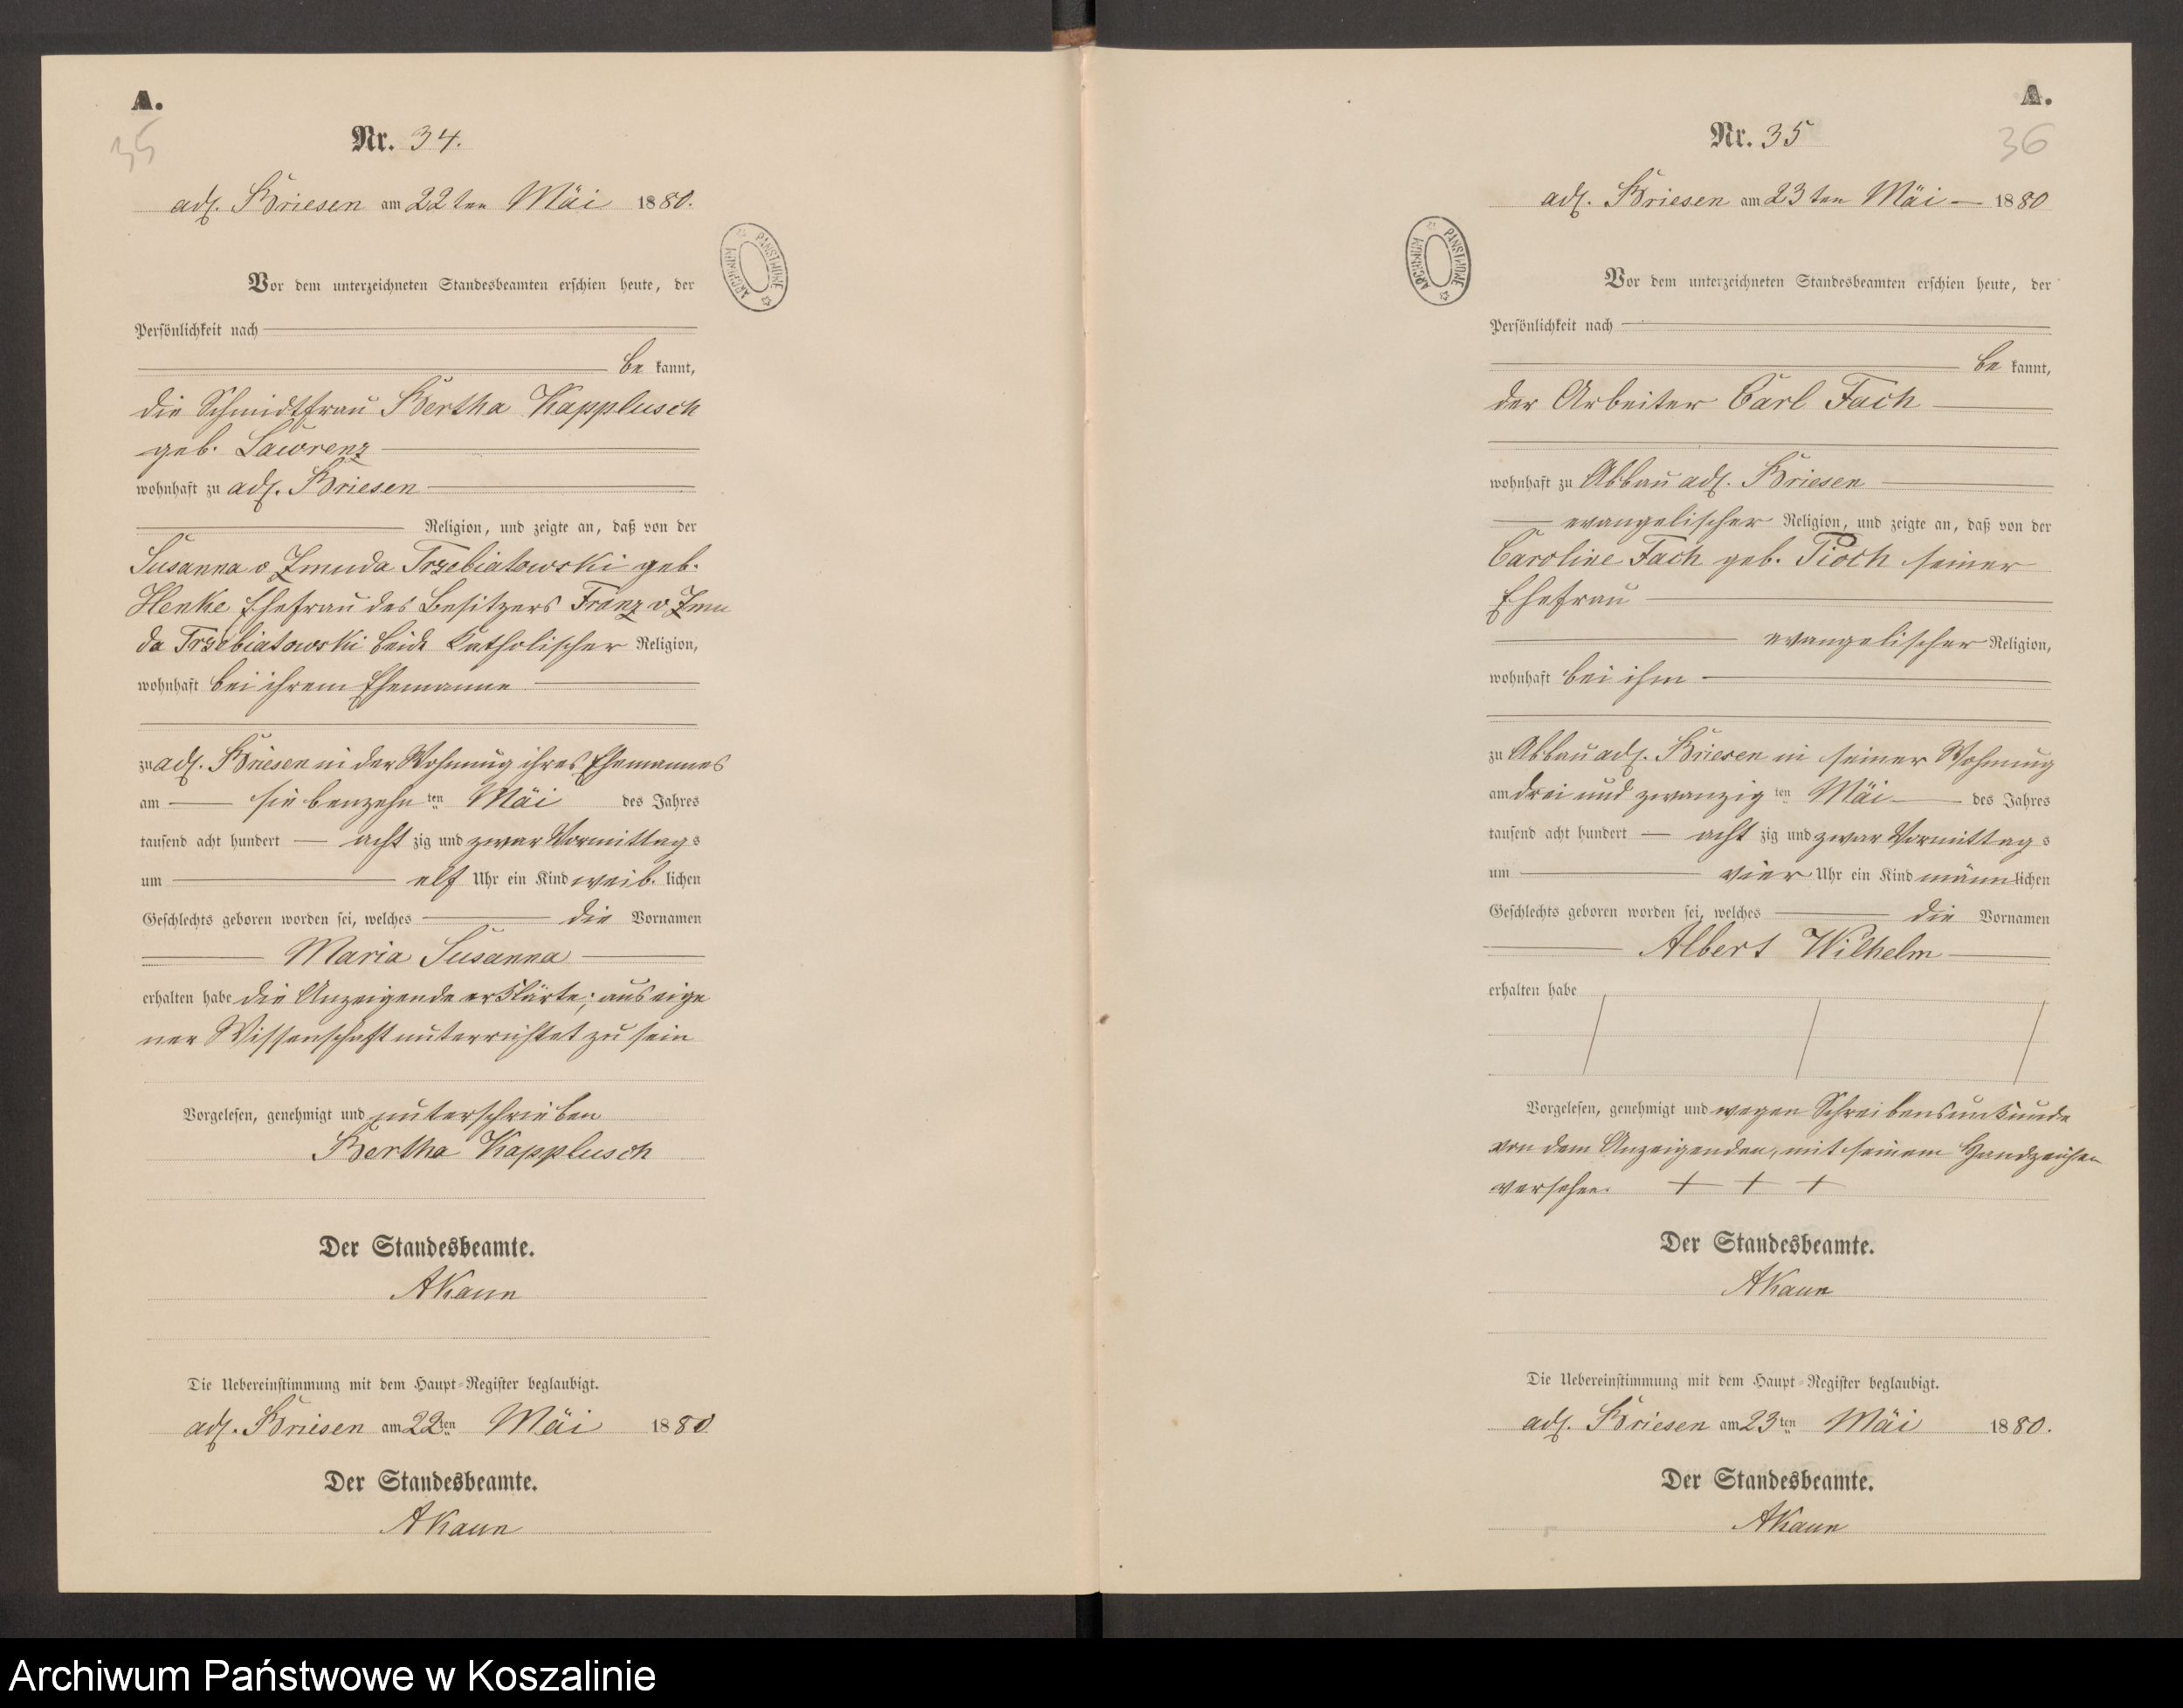 A.
35
Nr. 34.
adl. Briesen am 22ten Mai 1880.
ARCHIWUM PAŃSTWOWE
Vor dem unterzeichneten Standesbeamten erschien heute, der
Persönlichkeit nach
be kannt,
die Schmidtfrau Bertha Kapplusch
geb. Lawrenz
wohnhaft zu adl. Briesen
Religion, und zeigte an, daß von der
Susanna v Zmuda Trzebiatowski geb.
Henke Ehefrau des Besitzers Franz v Zmu
da Trzebiatowski beide katholischer Religion,
wohnhaft bei ihrem Ehemanne
zu adl. Briesen in der Wohnung ihres Ehemannes
am siebenzehn ten Mai des Jahres
tausend acht hundert acht zig und zwar Vormittags
um elf Uhr ein Kind weib. lichen
Geschlechts geboren worden sei, welches die Vornamen
Maria Susanna
erhalten habe die Anzeigende erklärte; aus eige
ner Wissenschaft unterrichtet zu sein
Vorgelesen, genehmigt und unterschrieben
Bertha Kapplusch
Der Standesbeamte.
AKaun
Die Uebereinstimmung mit dem Haupt-Register beglaubigt.
adl. Briesen am 22ten Mai 1880
Der Standesbeamte.
AKaun
A.
36
Nr. 35
adl. Briesen am 23ten Mai 1880
ARCHIWUM PAŃSTWOWE
Vor dem unterzeichneten Standesbeamten erschien heute, der
Persönlichkeit nach
be kannt,
der Arbeiter Carl Fach
wohnhaft zu Abbau adl. Briesen
evangelischer Religion, und zeigte an, daß von der
Caroline Fach geb. Pioch seiner
Ehefrau
evangelischer Religion,
wohnhaft bei ihm
zu Abbau adl. Briesen in seiner Wohnung
am drei und zwanzig ten Mai des Jahres
tausend acht hundert acht zig und zwar Vormittags
um vier Uhr ein Kind männlichen
Geschlechts geboren worden sei, welches die Vornamen
Albert Wilhelm
erhalten habe
Vorgelesen, genehmigt und wegen Schreibensunkunde
von dem Anzeigenden, mit seinem Handzeichen
versehen. + + +
Der Standesbeamte.
AKaun
Die Uebereinstimmung mit dem Haupt-Register beglaubigt.
adl. Briesen am 23ten Mai 1880.
Der Standesbeamte.
AKaun
Archiwum Państwowe w Koszalinie